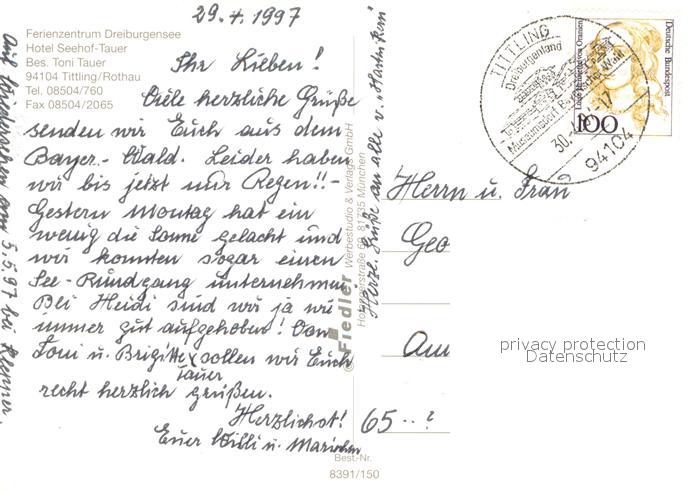 29.4.1997
Ferienzentrum Dreiburgensee
Hotel Seehof-Tauer
Bes. Toni Tauer
94104 Tittling/Rothau
Tel. 08504/760
Fax 08504/2065
Ihr Lieben!
Viele herzliche Grüße
senden wir Euch aus dem
Bayer.-Wald. Leider haben
wir bis jetzt nur Regen!!-
Gestern Montag hat ein
wenig die Sonne gelacht und
wir konnten sogar einen
See-Rundgang unternehmen
Bei Heidi sind wir ja wie
immer gut aufgehoben! Von
Toni u. Brigitte sollen wir Euch
Tauer
recht herzlich grüßen.
Herzlichst!
Euer Willi u.
Auf Wiedersehen am 5.5.97 bei
Herzl. Grüße an alle v.
Fiedler Werbestudio & Verlags GmbH
81735 München
Best.-Nr.
8391/150
TITTLING
Dreiburgenland
Museumsdorf
30.
-17
94104
Deutsche Bundespost
Oranien
100
Herrn u. Frau
Geo
Am
65..?
privacy protection
Datenschutz